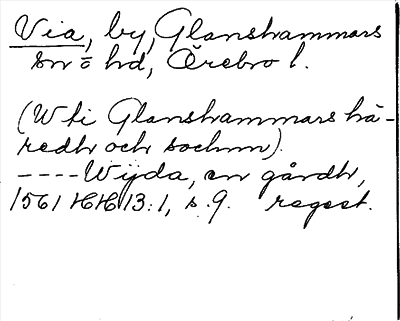 Via, by, Glanshammars
sn o hd, Örebro l.
(W ti Glanshammars hä-
redh och sochnn).
----Wijda, en gårdh,
1561 HH 13:1, s. 9. regest.